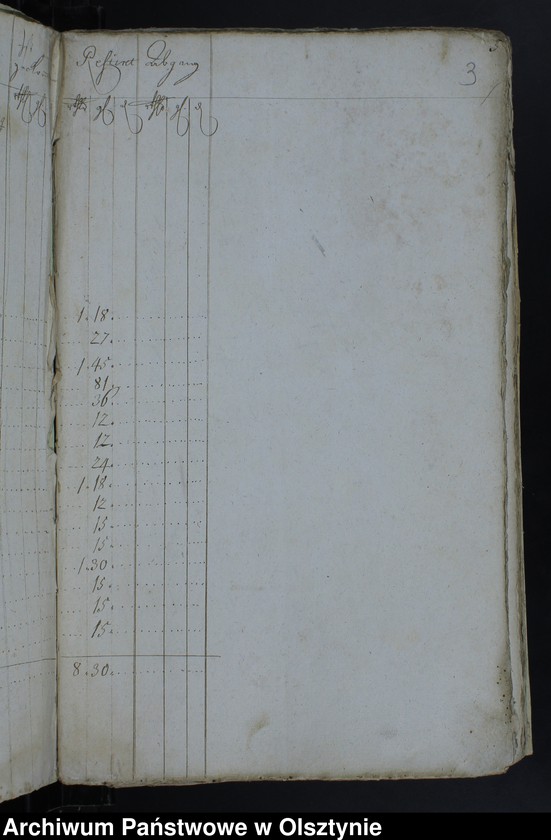 Restiret Abgang
3
1. 18.
27.
1. 45.
81.
36.
12.
12.
24.
1. 18.
12.
15.
15.
1. 30.
15.
15.
15.
8. 30.
Archiwum Państwowe w Olsztynie